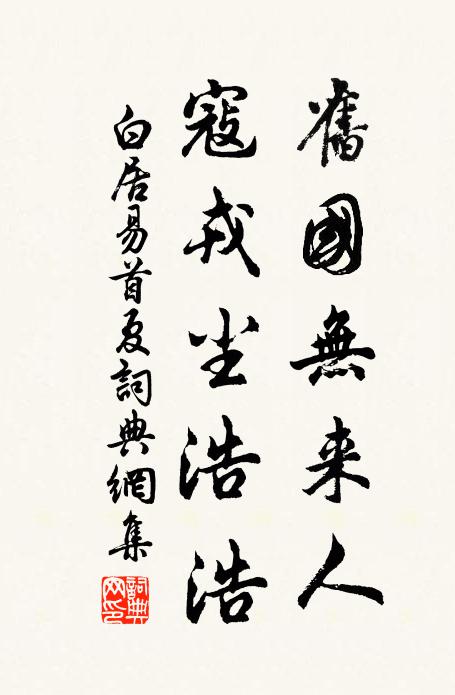 舊國無来人
寇戎尘浩浩
白居易首夏詞典網集
詞典网印